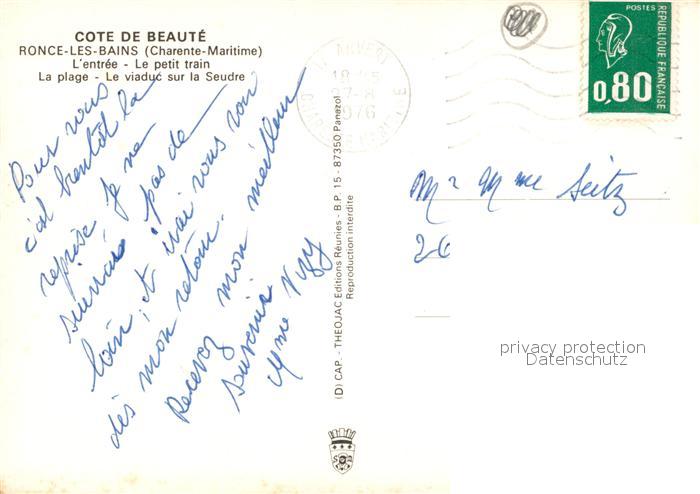 COTE DE BEAUTÉ
RONCE-LES-BAINS (Charente-Maritime)
L'entrée - Le petit train
La plage - Le viaduc sur la Seudre
Pour vous
c'est bientôt la
reprise, Je ne
suis pas de
loin, et irai vous voir
dès mon retour.
Recevez mon meilleur
souvenir
Mme
(D) CAP. - THEOJAC Editions Réunies - B.P. 15 - 87350 Panazol
Reproduction interdite
18
1976
CHARENTE MARITIME
POSTES
REPUBLIQUE FRANÇAISE
0,80
Mr Mme Seitz
26
privacy protection
Datenschutz